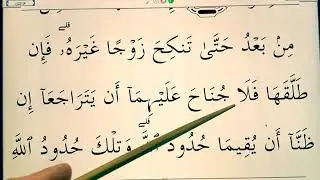 مِنۢ بَعۡدُ حَتَّىٰ تَنكِحَ زَوۡجًا غَيۡرَهُۥۗ فَإِن
طَلَّقَهَا فَلَا جُنَاحَ عَلَيۡهِمَآ أَن يَتَرَاجَعَآ إِن
ظَنَّآ أَن يُقِيمَا حُدُودَ ٱللَّهِۗ وَتِلۡكَ حُدُودُ ٱللَّهِ